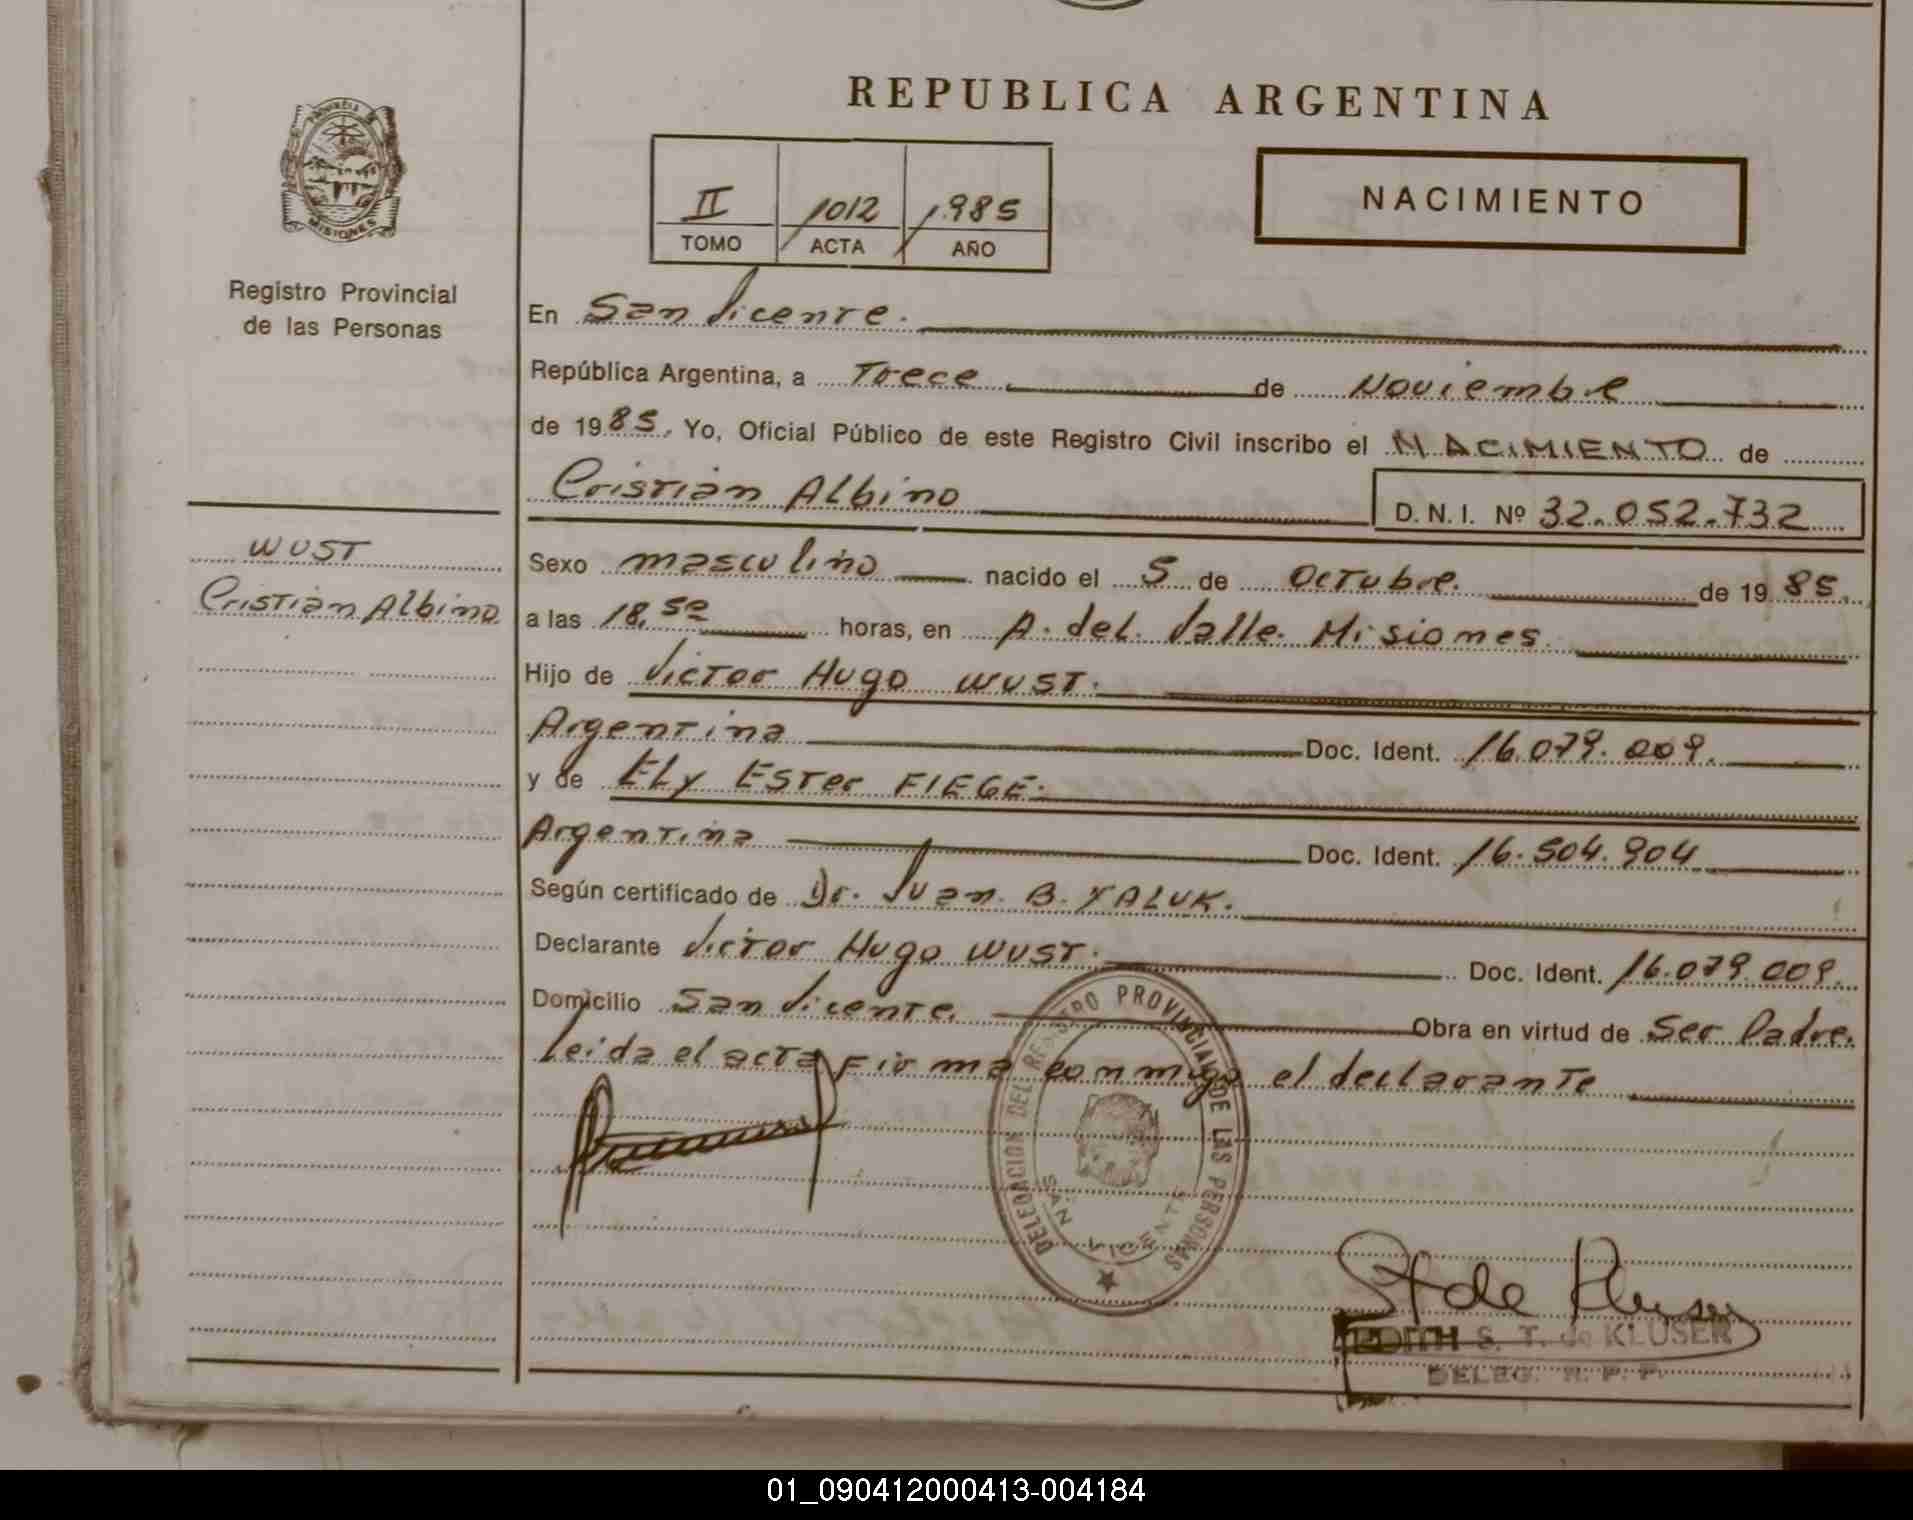 REPUBLICA ARGENTINA
PROVINCIA DE
MISIONES
Registro Provincial
de las Personas
II 1012 1.985
TOMO ACTA AÑO
NACIMIENTO
En San Vicente.
República Argentina, a Trece de Noviembre
de 1985. Yo, Oficial Público de este Registro Civil inscribo el NACIMIENTO de
Cristian Albino D. N. I. Nº 32.052.732
WUST
Cristian Albino
Sexo masculino nacido el 5 de Octubre. de 1985.
a las 18,50 horas, en A. del Valle. Misiones.
Hijo de Victor Hugo WUST.
Argentina Doc. Ident. 16.079.009.
y de Ely Ester FIEGE.
Argentina Doc. Ident. 16.504.904
Según certificado de Dr. Juan B. YALUK.
Declarante Victor Hugo WUST. Doc. Ident. 16.079.009.
Domicilio San Vicente. Obra en virtud de Ser Padre.
Leida el acta firma conmigo el declarante
DELEGACION DEL REGISTRO PROVINCIAL DE LAS PERSONAS
SAN VICENTE
St de Kluser
EDITH S. T. de KLUSER
DELEG. R. P. P.
01_090412000413-004184